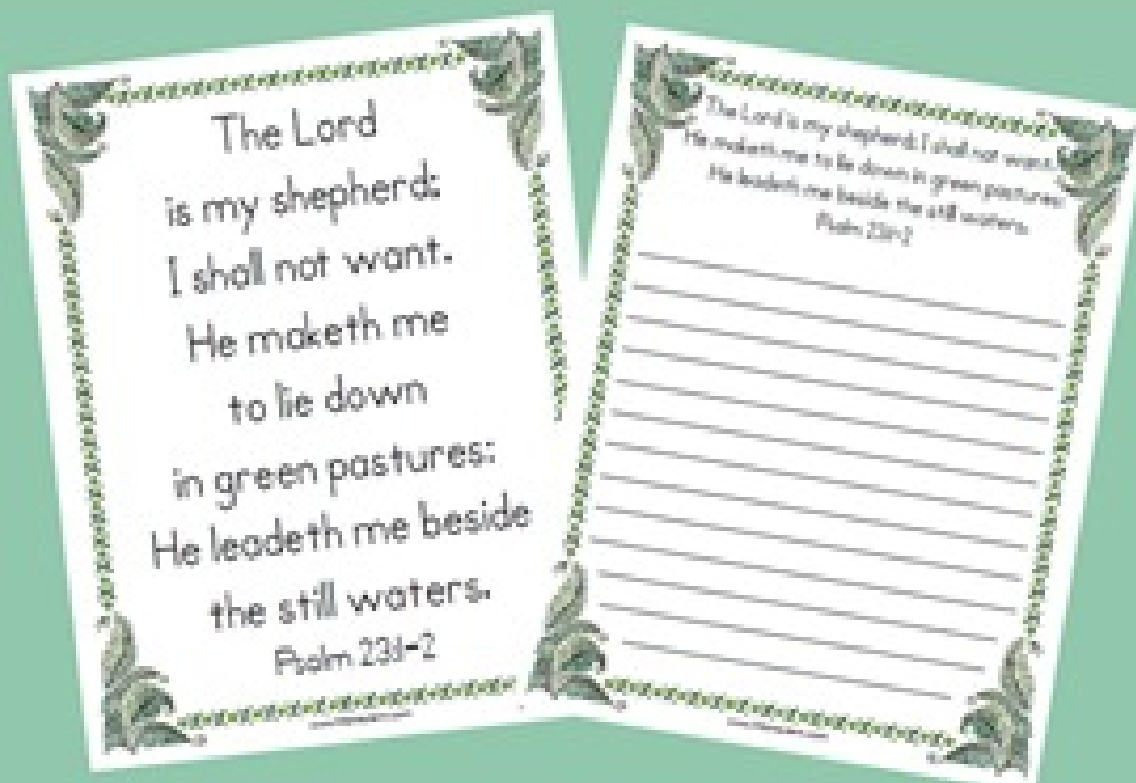 The Lord
is my shepherd;
I shall not want.
He maketh me
to lie down
in green pastures:
He leadeth me beside
the still waters.
Psalm 23:1-2
The Lord is my shepherd; I shall not want.
He maketh me to lie down in green pastures:
He leadeth me beside the still waters.
Psalm 23:1-2